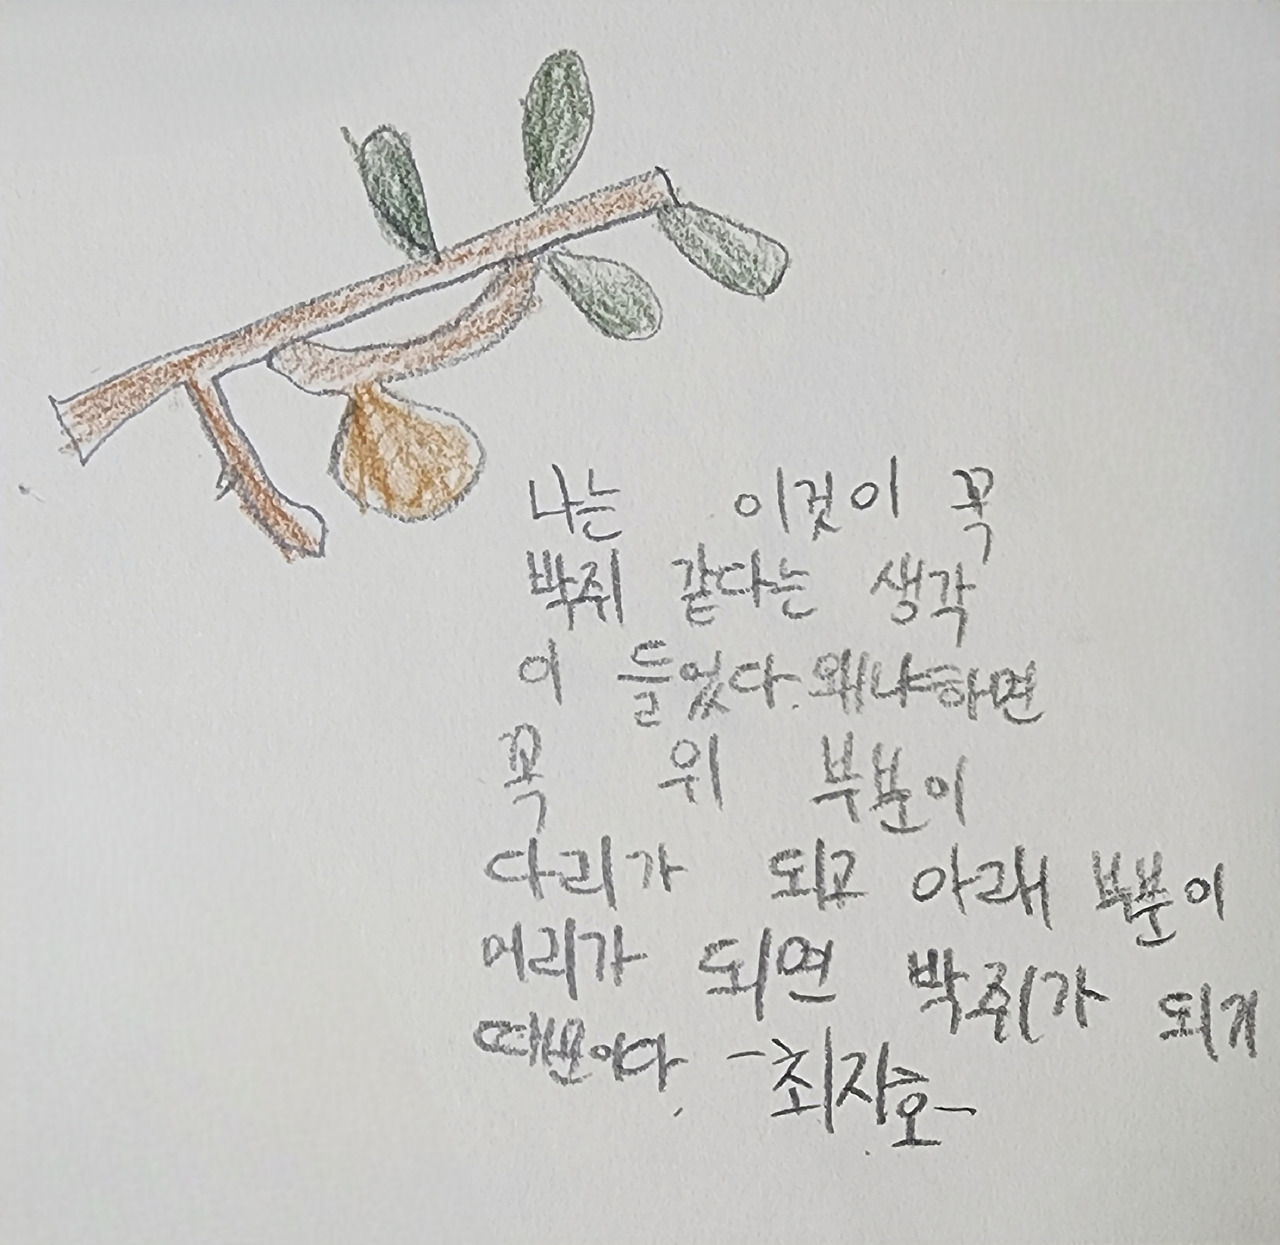 나는 이것이 꼭
박쥐 같다는 생각
이 들었다. 왜냐하면
꼭 위 부분이
다리가 되고 아래 부분이
머리가 되면 박쥐가 되기
때문이다. -최지호-